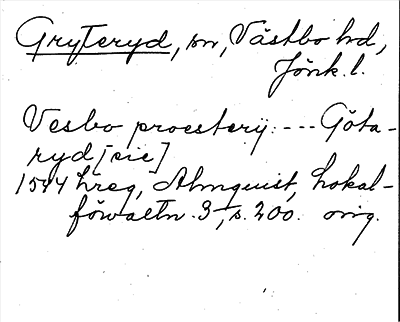 Gryteryd, sn, Västbo hd,
Jönk. l.
Vesbo proesterij --- Göta-
ryd [sic]
1544 hreg, Almquist, Lokal-
förvaltn. 3, s. 200. orig.